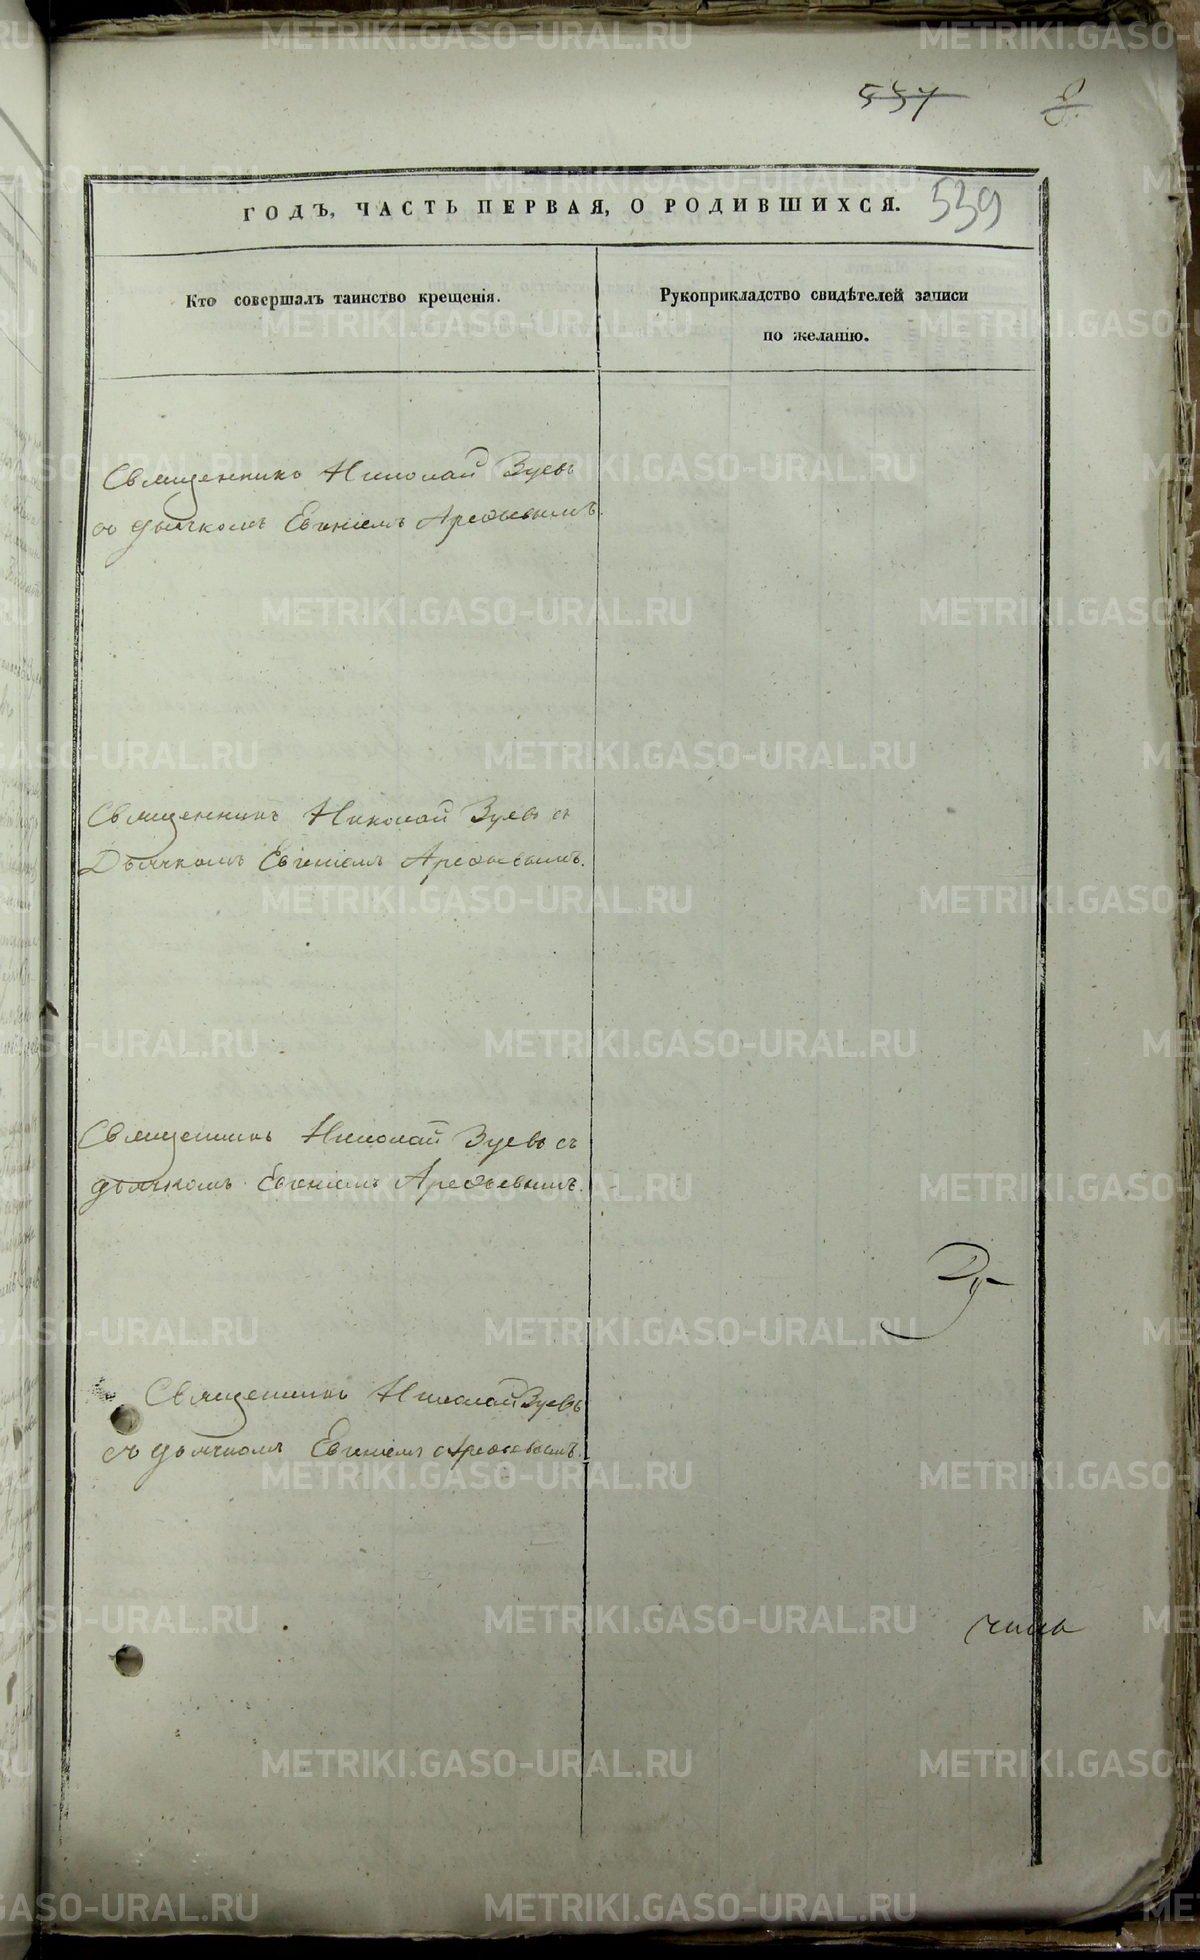 537
8.
539
ГОДЪ, ЧАСТЬ ПЕРВАЯ, О РОДИВШИХСЯ.
Кто совершалъ таинство крещенія.
Рукоприкладство свидѣтелей записи
по желанію.
Священникъ Николай Зуевъ
съ дьячкомъ Евгеніемъ Арефьевымъ.
Священникъ Николай Зуевъ съ
Дьячкомъ Евгеніемъ Арефьевымъ.
Священникъ Николай Зуевъ съ
дьячкомъ Евгеніемъ Арефьевымъ.
Священникъ Николай Зуевъ
съ дьячкомъ Евгеніемъ Арефьевымъ.
METRIKI.GASO-URAL.RU